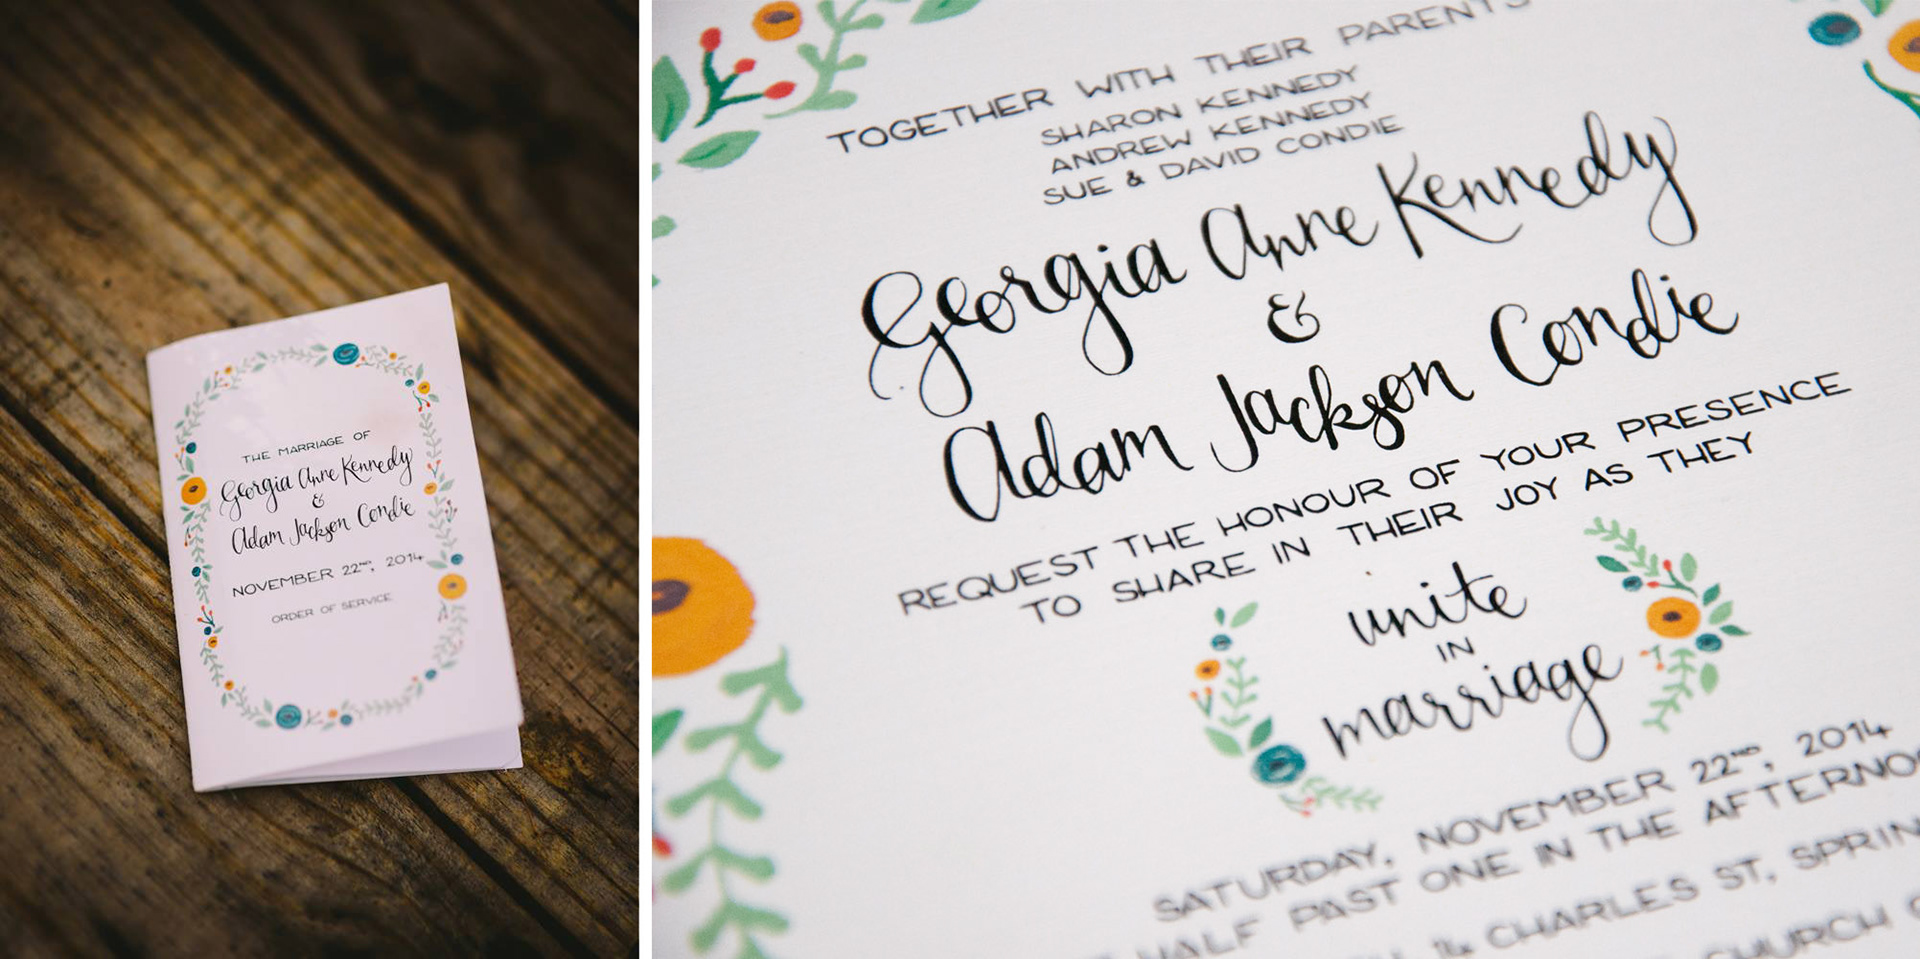 THE MARRIAGE OF
Georgia Anne Kennedy
&
Adam Jackson Condie
NOVEMBER 22ND, 2014
ORDER OF SERVICE
TOGETHER WITH THEIR PARENTS
SHARON KENNEDY
ANDREW KENNEDY
SUE & DAVID CONDIE
Georgia Anne Kennedy
&
Adam Jackson Condie
REQUEST THE HONOUR OF YOUR PRESENCE
TO SHARE IN THEIR JOY AS THEY
unite
IN
marriage
SATURDAY, NOVEMBER 22ND, 2014
HALF PAST ONE IN THE AFTERNO
14 CHARLES ST, SPRIN
CHURCH